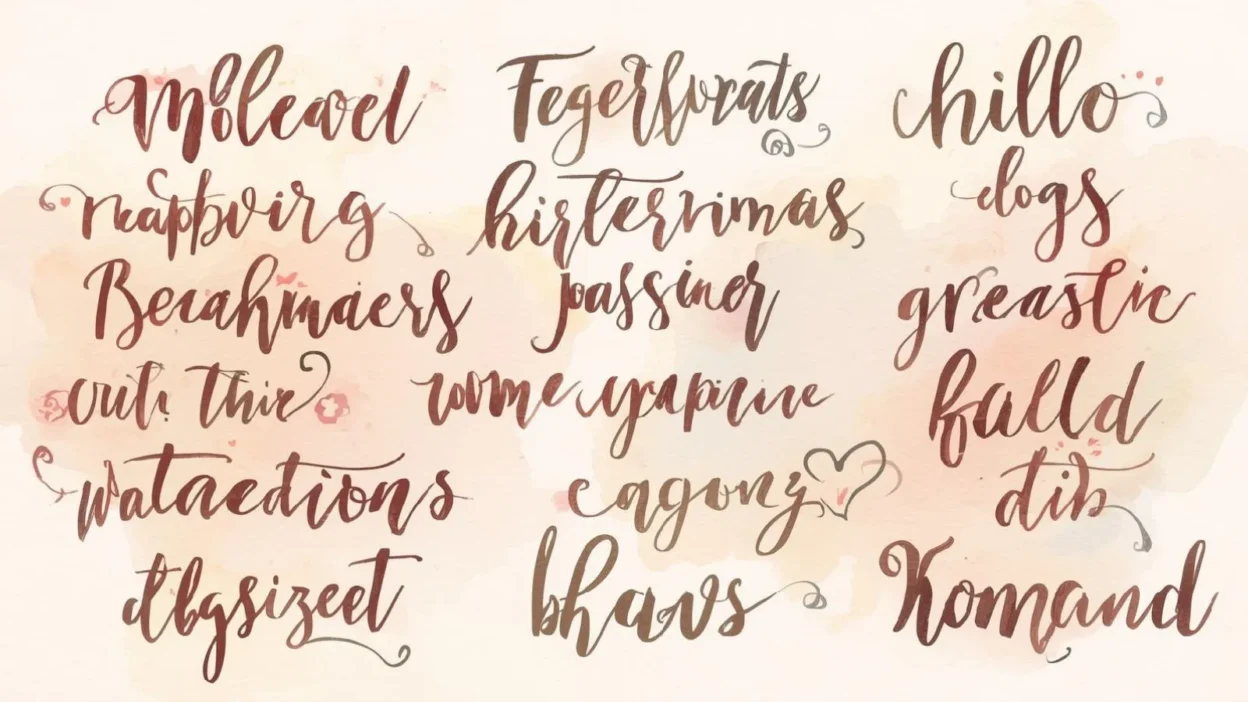 Molearel
Fegerfvrats
chillo
neapbvirg
hirterrimas
dogs
Becahmaers
passiner
greastic
out. Thir
wome yyapirire
falld
Wataedions
cagony
dib
dbgsizeet
bhavs
Komand